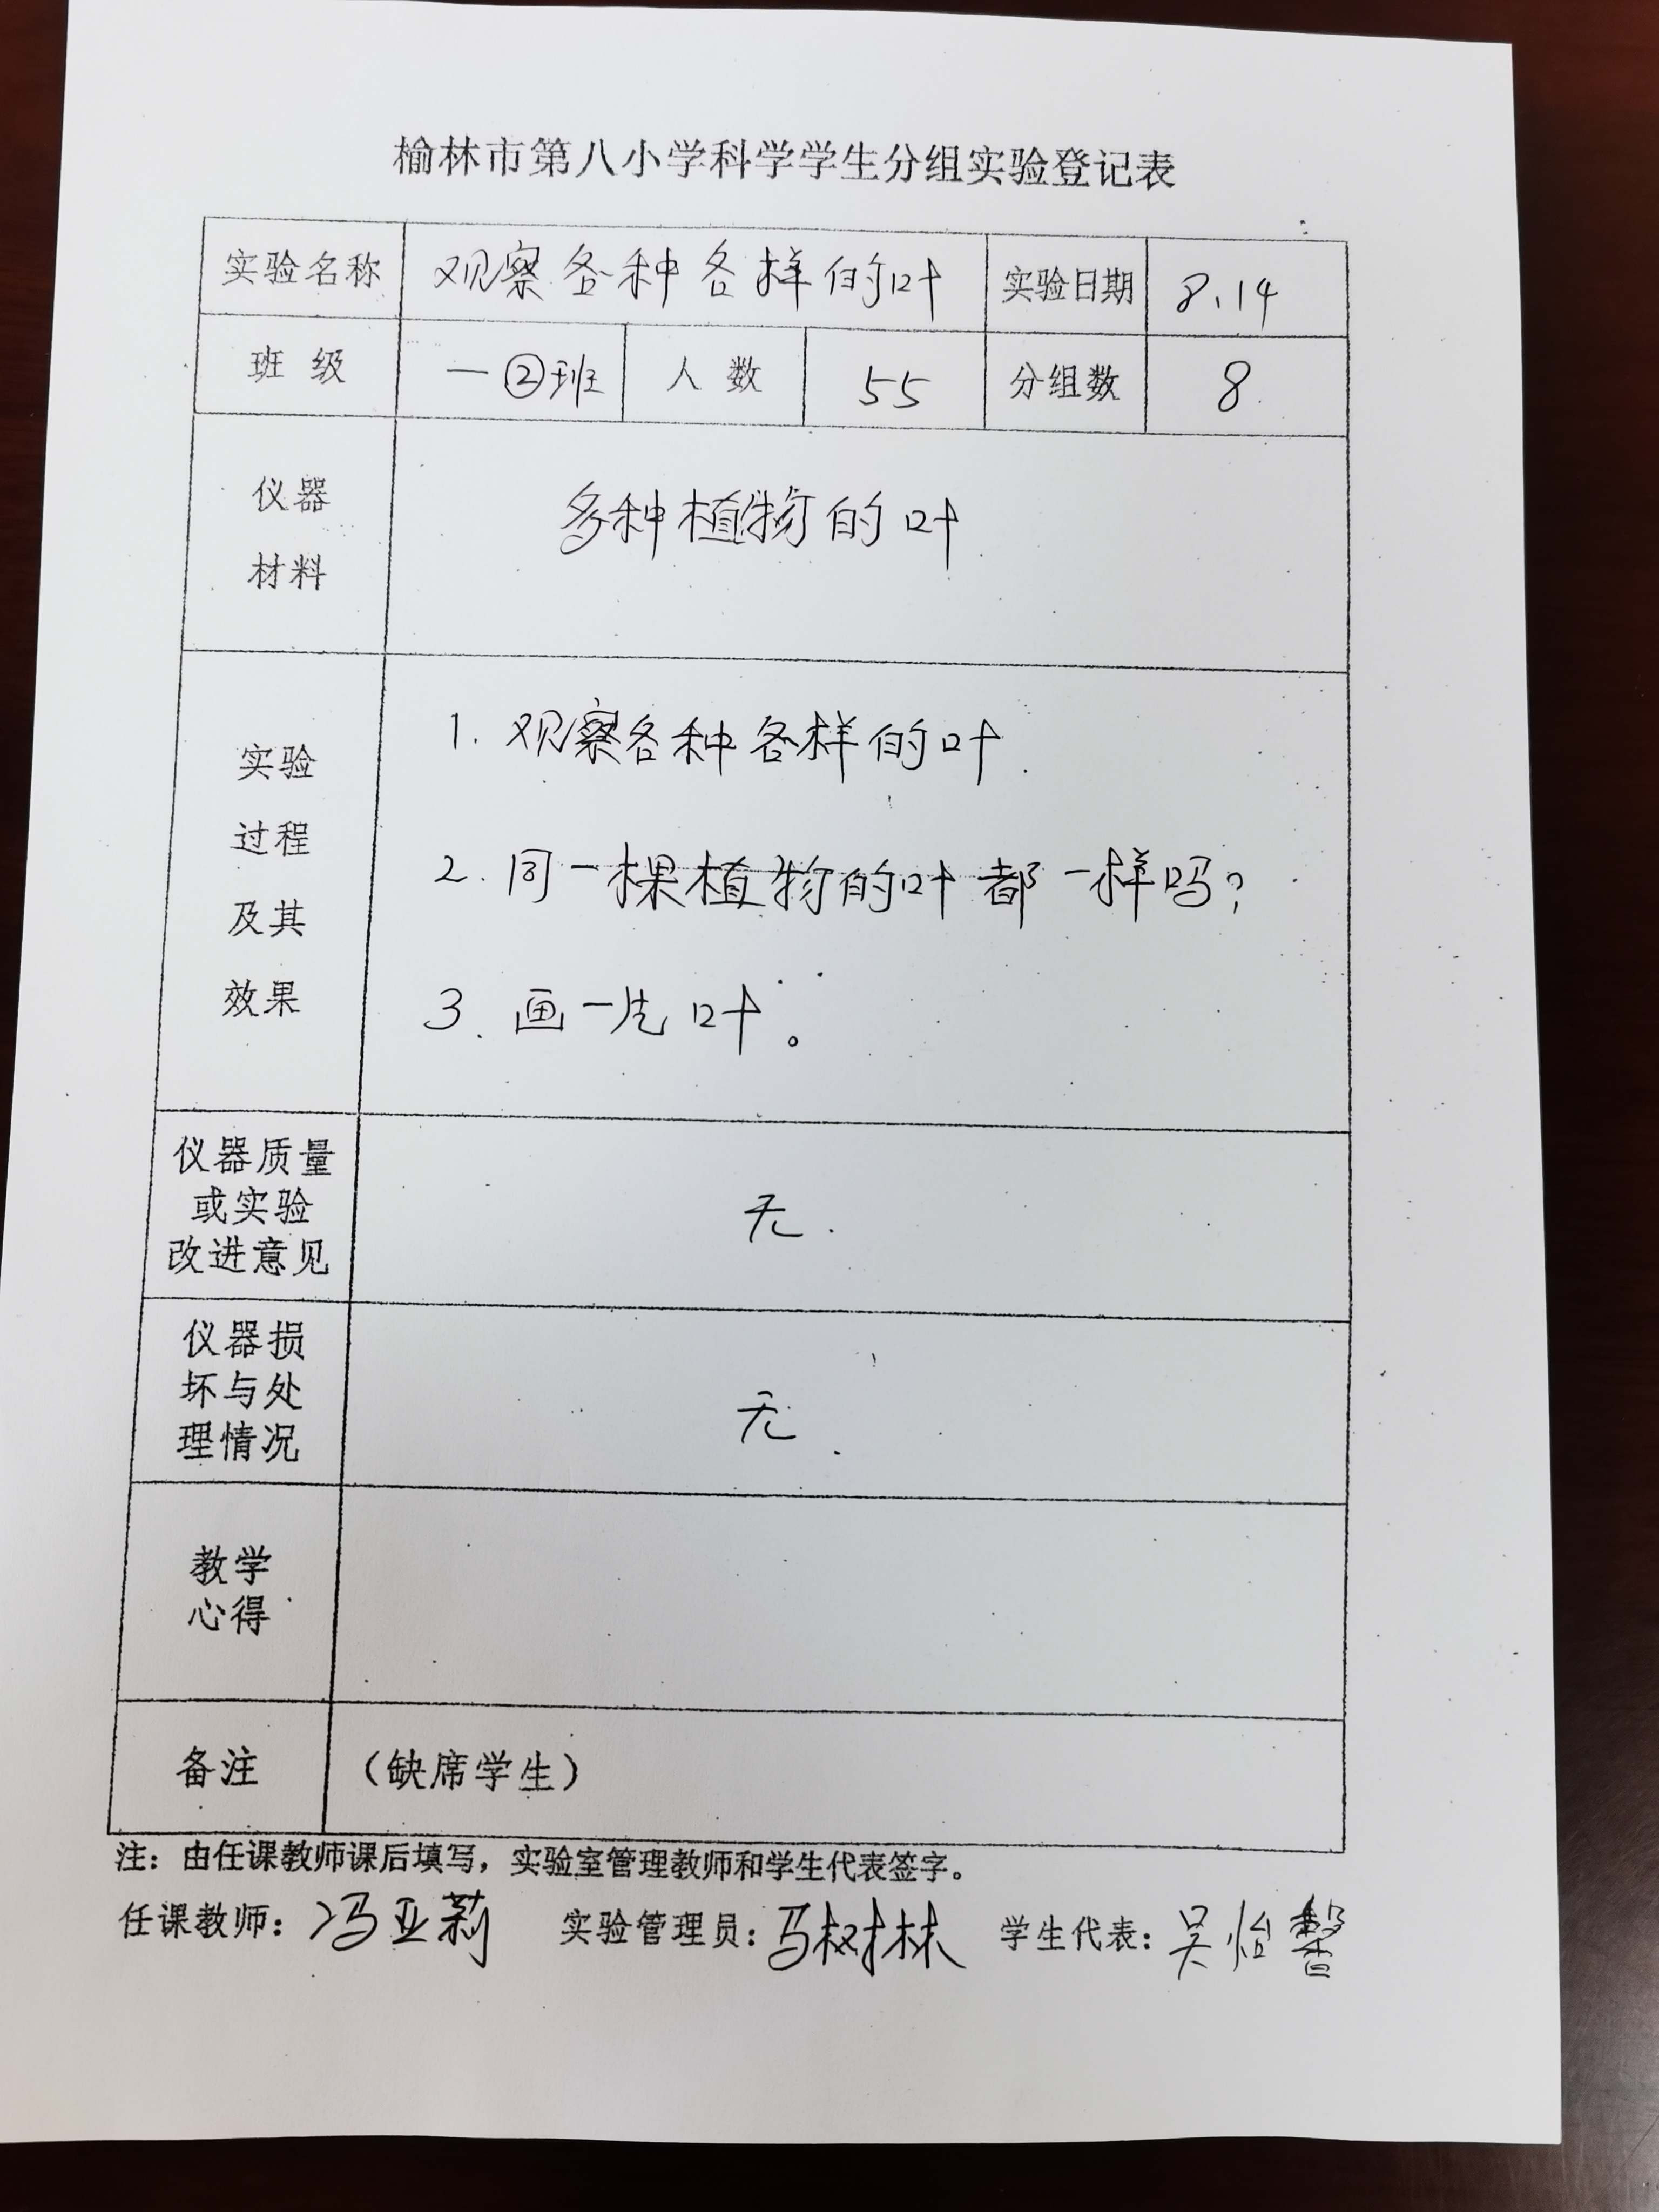 榆林市第八小学科学学生分组实验登记表
实验名称 观察各种各样的叶 实验日期 8.14
班级 一②班 人数 55 分组数 8
仪器
材料
多种植物的叶
实验
过程
及其
效果
1. 观察各种各样的叶.
2. 同一棵植物的叶都一样吗?
3. 画一片叶。
仪器质量
或实验
改进意见
无.
仪器损
坏与处
理情况
无.
教学
心得
备注 (缺席学生)
注：由任课教师课后填写，实验室管理教师和学生代表签字。
任课教师：冯亚莉 实验管理员：马树林 学生代表：吴怡馨